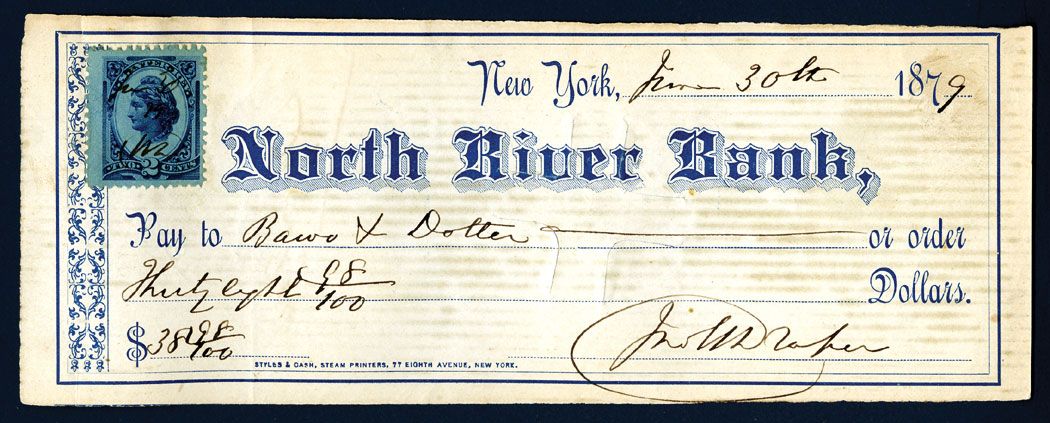 New York, June 30th 1879
North River Bank,
Pay to Bawo & Dotter or order
Thirty eight 98/100 Dollars.
$38 98/100
STYLES & CASH, STEAM PRINTERS, 77 EIGHTH AVENUE, NEW YORK.
TWO 2 CENTS